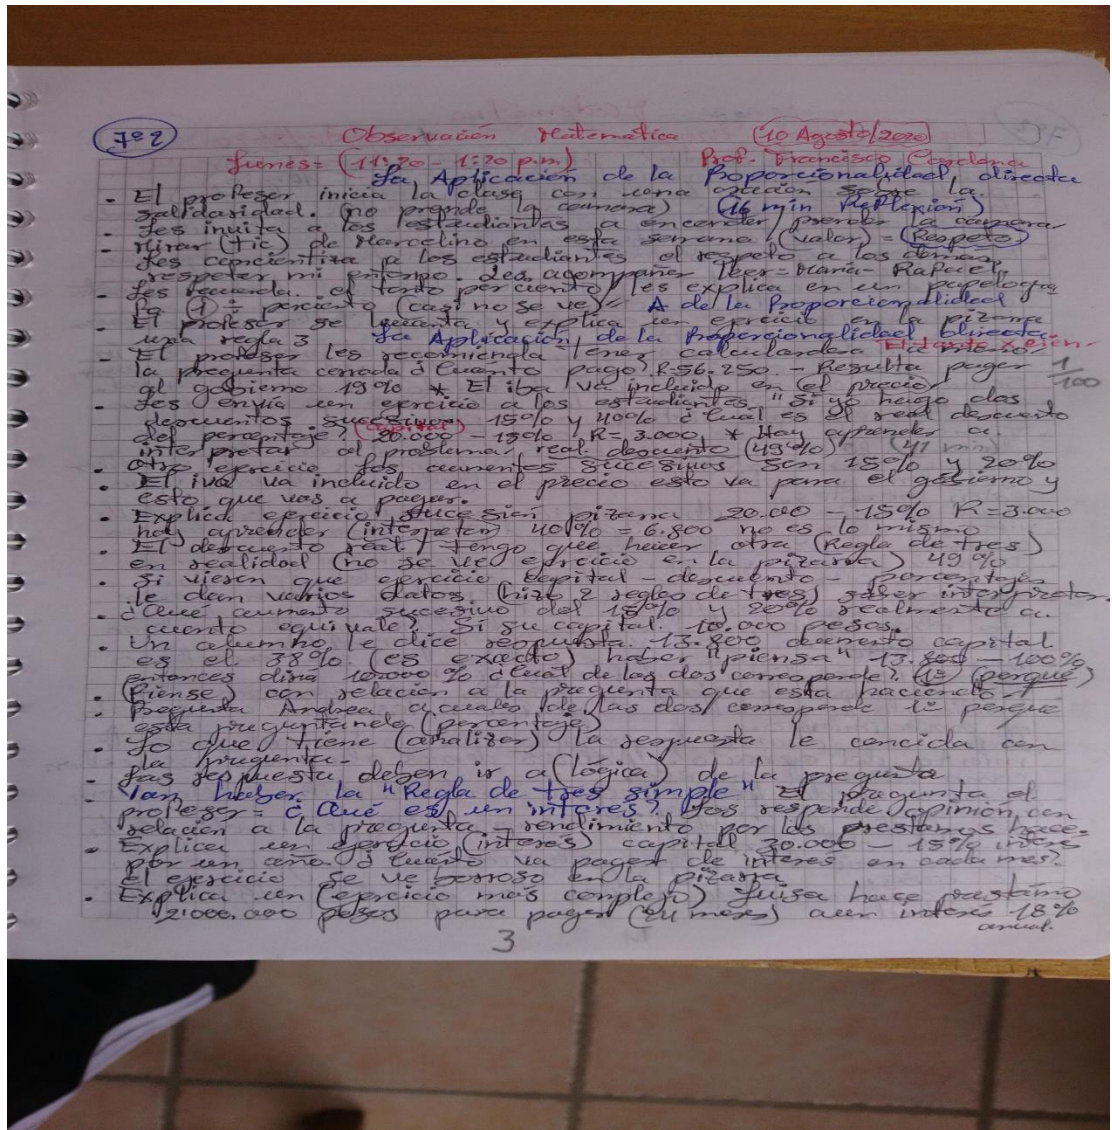 7º2 Observación Matemática (10 Agosto/2020)
Lunes = (11:20 - 1:20 p.m) Prof. Francisco Cardona
La Aplicación de la Proporcionalidad directa
• El profesor inicia la clase con una oración sobre la
solidaridad. (no prende la camara) (16 min Reflexión)
• Les invita a los estudiantes a encender, prender la camara
• Mirar (tic) de Marcelino en esta semana (valor) = Respeto
Les concientiza a los estudiantes el respeto a los demas,
respetar mi entorno. acompañar leer = Maria - Rafael,
• Les recuerda el tanto porciento, les explica en un papelografo
la (1) ÷ porciento (casi no se ve) = A de la Proporcionalidad
• El profesor se levanta y explica un ejercicio en la pizarra
una regla 3 La Aplicación de la Proporcionalidad Directa
• El profesor les recomienda tener calculadora a la mano El tanto x cien.
la pregunta cerrada ¿Cuanto pago? R-56.250. - Resulta pagar 1/100
al gobierno 19% * El iba va incluido en el precio
• Les envia un ejercicio a los estudiantes "Si yo hago dos
descuentos sucesivos 15% y 40% ¿Cuál es el real descuento
del porcentaje? (capital) 20.000 - 15% R= 3.000 * Hay aprender a
interpretar al problema real descuento (49%) (41 min)
• Otro ejercicio los aumentos sucesivos son 15% y 20%
• El iva va incluido en el precio esto va para el gobierno y
esto que vas a pagar.
• Explica ejercicio pizarra 20.000 - 15% R=3.000
hay aprender (interpretar) 40% = 6.800 no es lo mismo
• El descuento real / tengo que hacer otra (Regla de tres)
en realidad (no se ve ejercicio en la pizarra) 49%
• Si viesen que ejercicio capital - descuento - porcentajes
le dan varios datos (hizo 2 reglas de tres) saber interpretar.
• ¿Qué aumento sucesivo del 15% y 20% realmente a
cuanto equivale? Si su capital. 10.000 pesos.
• Un alumno le dice respuesta. 13.800 aumento capital
es el 38% (es exacto) haber "piensa" 13.800 - 100%
entonces diria 10.000 % ¿Cuál de las dos corresponde? (1º) (porque)
• (Piense) con relación a la pregunta que esta haciendo
• Pregunta Andrea a cuales de las dos corresponde 1º porque
esta preguntando (porcentaje)
• Lo que tiene (analizar) la respuesta le concida con
la pregunta.
• Las respuesta deben ir a (lógica) de la pregunta
Van haber la "Regla de tres simple" El pregunta el
profesor = ¿Qué es un interes? Los responde opinión, con
relación a la pregunta - rendimiento por los prestamos hace.
• Explica un ejercicio (interés) capital 30.000 - 15% interes
por un año. ¿Cuánto va pagar de interes en cada mes?
El ejercicio se ve borroso en la pizarra
• Explica un (ejercicio más complejo) Luisa hace prestamo
2'000.000 pesos para pagar (24 meses) a un interés 18%
anual.
3